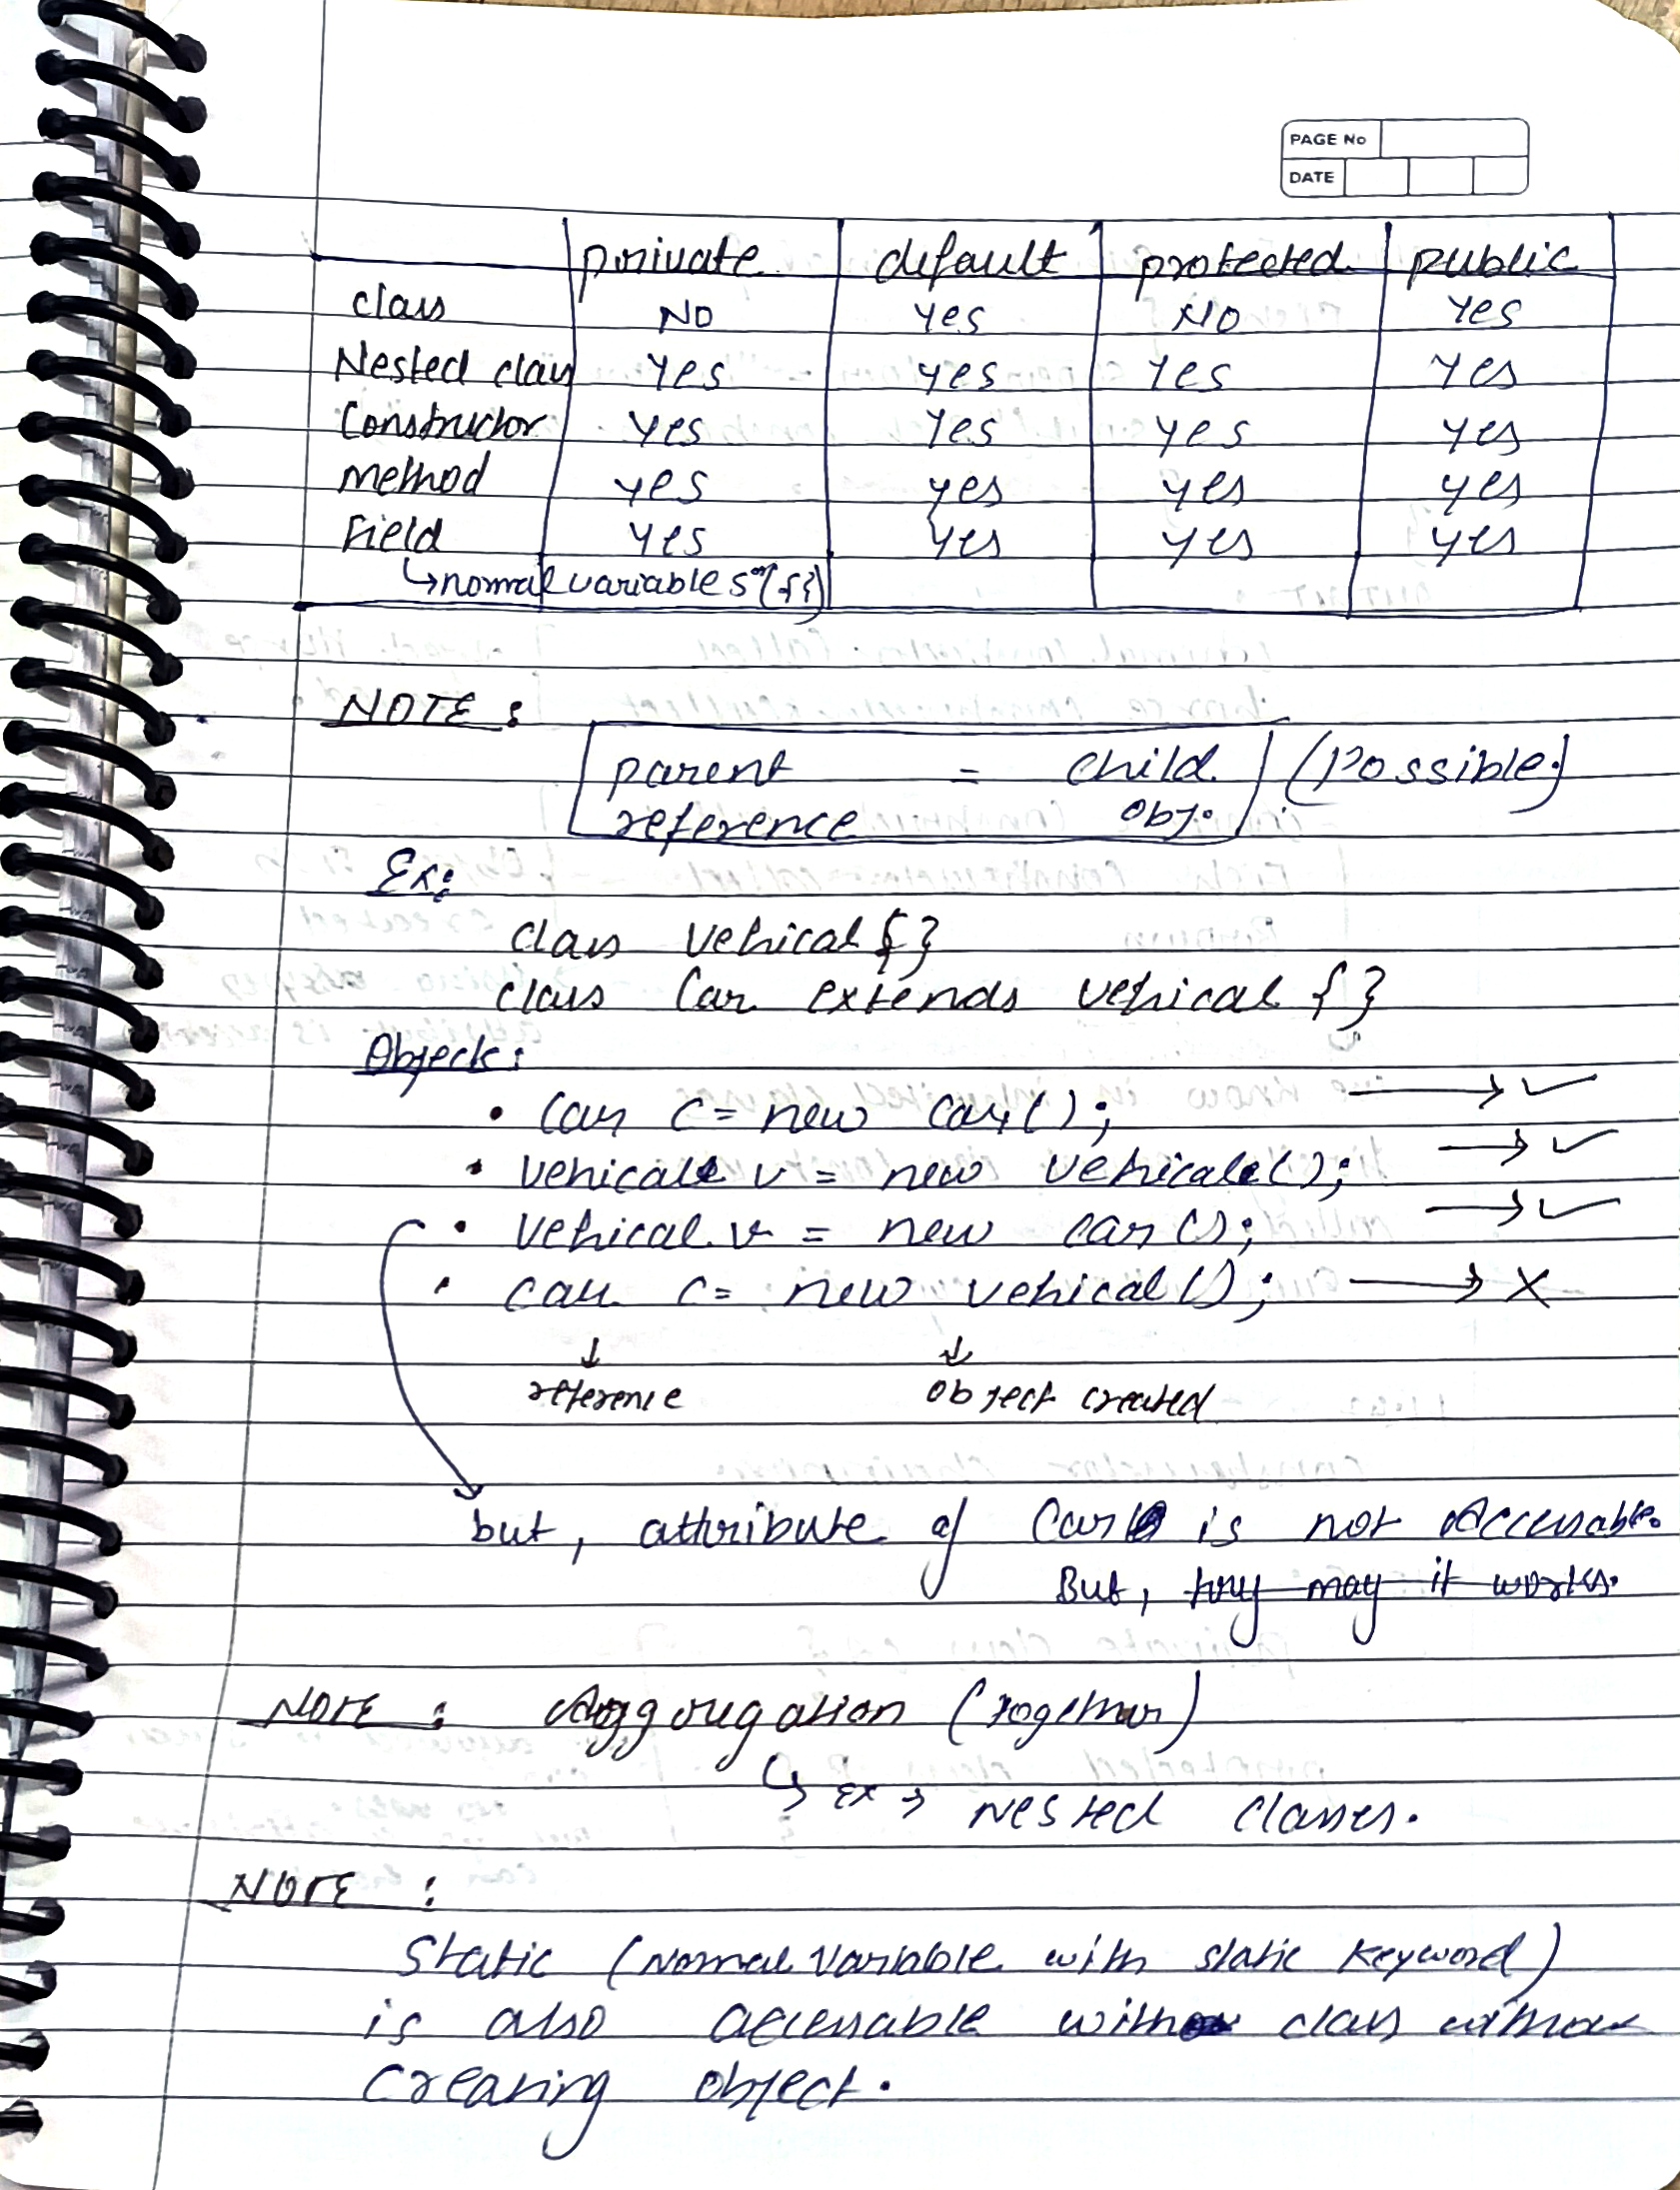 PAGE No
DATE
private default protected public
class NO Yes NO Yes
Nested class Yes yes Yes Yes
Constructor Yes Yes yes yes
method yes yes yes yes
Field yes yes yes yes
↳ normal variables or ({})
NOTE :
parent = child (Possible)
reference obj.
Ex:
class vehical { }
class Car extends vehical { }
Objects:
• Car c = new Car(); → ✓
• vehicale v = new vehicale(); → ✓
• vehical v = new car(); → ✓
• car c = new vehical(); → X
↓ ↓
reference object created
but, attribute of Car is not Accessable.
But, try may it works.
NOTE : Aggregation (together)
↳ Ex → Nested classes.
NOTE :
Static (Normal Variable with static keyword)
is also accessable with class without
creating object.